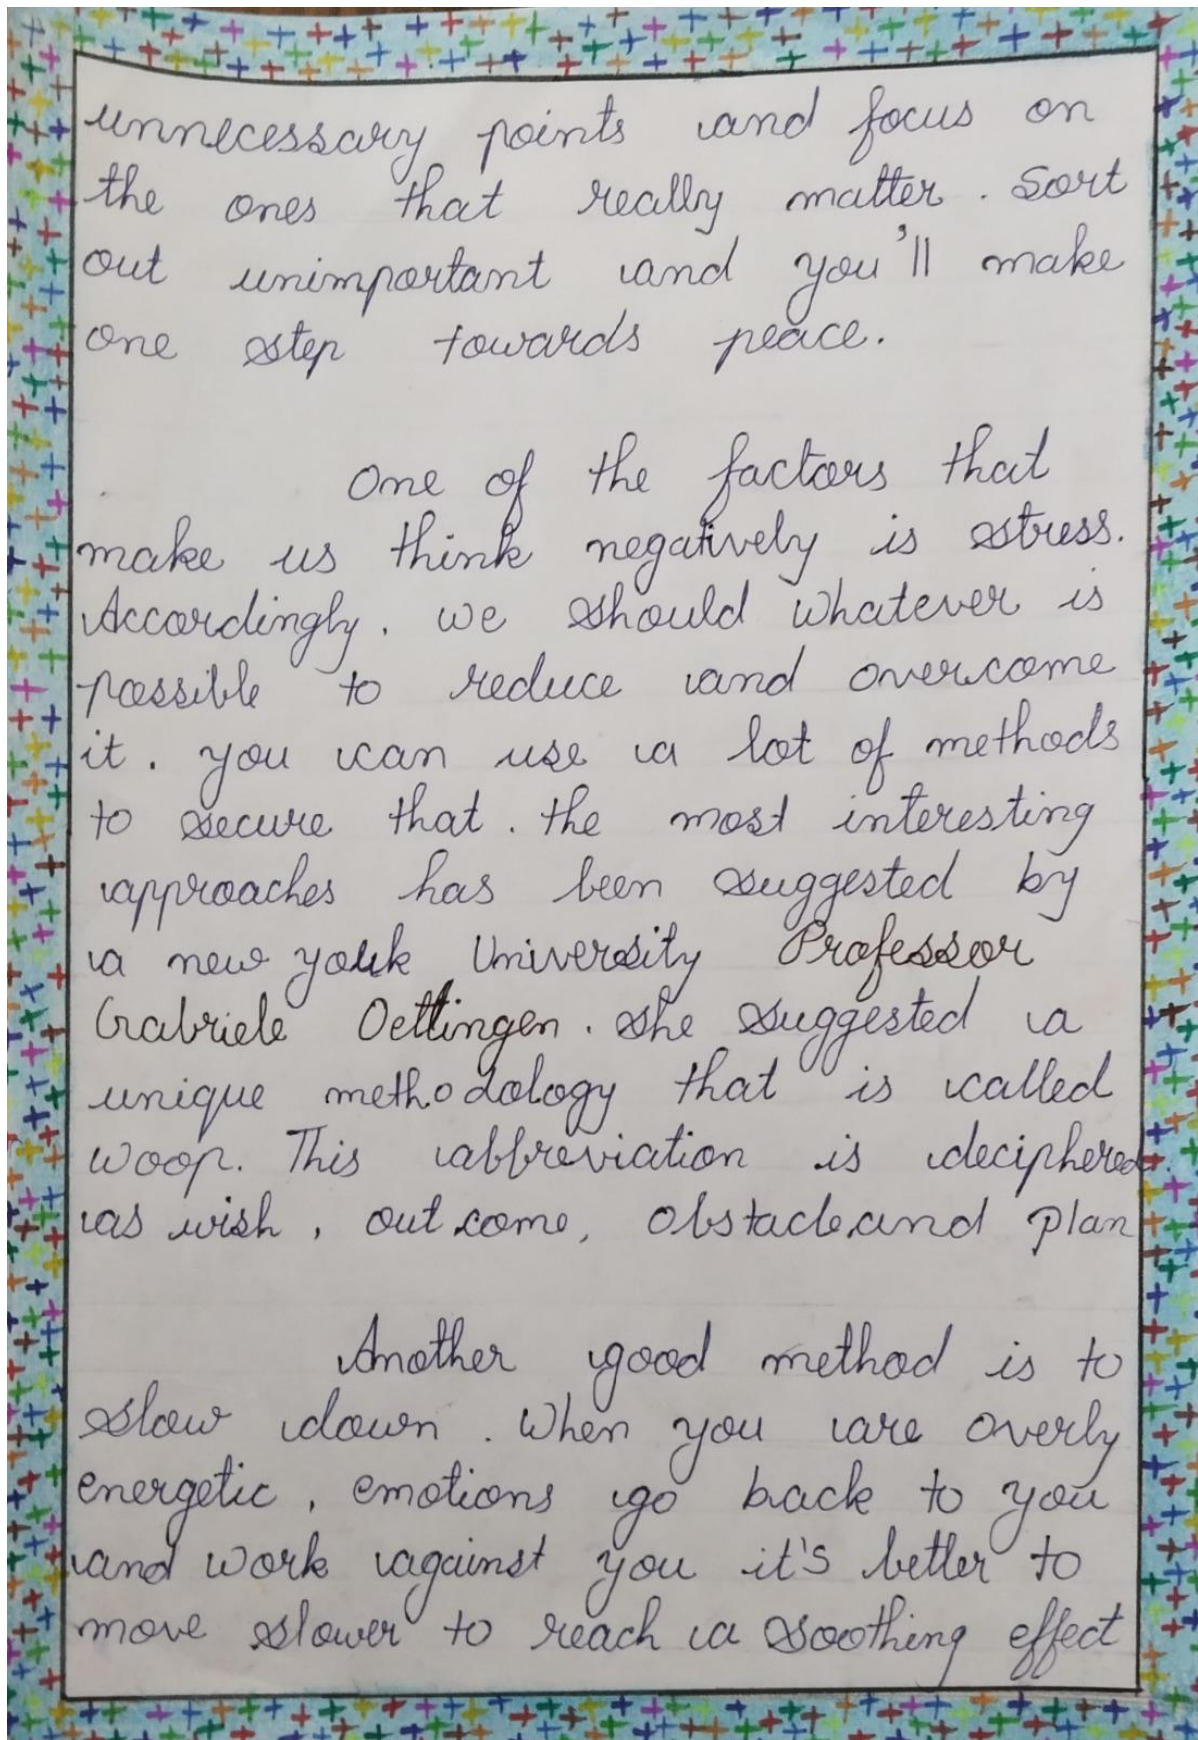 unnecessary points and focus on
the ones that really matter. Sort
out unimportant and you'll make
one step towards peace.
One of the factors that
make us think negatively is stress.
Accordingly. we should whatever is
possible to reduce and overcome
it. you can use a lot of methods
to secure that. the most interesting
approaches has been suggested by
a new york University Professor
Gabriele Oettingen. she suggested a
unique methodology that is called
woop. This abbreviation is deciphered.
as wish, out come, Obstacle and plan
Another good method is to
slow down. When you are overly
energetic, emotions go back to you
and work against you it's better to
move slower to reach a soothing effect